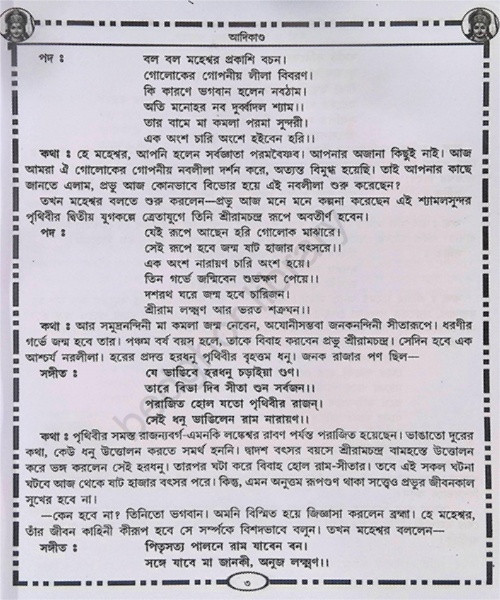 আদিকাণ্ড
পদ ঃ বল বল মহেশ্বর প্রকাশি বচন।
গোলোকের গোপনীয় লীলা বিবরণ।
কি কারণে ভগবান হলেন নবঠাম।
অতি মনোহর নব দুর্ব্বাদল শ্যাম।।
তার বামে মা কমলা পরমা সুন্দরী।
এক অংশ চারি অংশে হইবেন হরি।।
কথা ঃ হে মহেশ্বর, আপনি হলেন সর্বজ্ঞাতা পরমবৈষ্ণব। আপনার অজানা কিছুই নাই। আজ
আমরা ঐ গোলোকের গোপনীয় নবলীলা দর্শন করে, অত্যন্ত বিমুগ্ধ হয়েছি। তাই আপনার কাছে
জানতে এলাম, প্রভু আজ কোনভাবে বিভোর হয়ে এই নবলীলা শুরু করেছেন?
তখন মহেশ্বর বলতে শুরু করলেন—প্রভু আজ মনে মনে কল্পনা করেছেন এই শ্যামলসুন্দর
পৃথিবীর দ্বিতীয় যুগকল্পে ত্রেতাযুগে তিনি শ্রীরামচন্দ্র রূপে অবতীর্ণ হবেন।
পদ ঃ যেই রূপে আছেন হরি গোলোক মাঝারে।
সেই রূপে হবে জন্ম ষাট হাজার বৎসরে।।
এক অংশ নারায়ণ চারি অংশ হয়ে।
তিন গর্ভে জন্মিবেন শুভক্ষণ পেয়ে।।
দশরথ ঘরে জন্ম হবে চারিজন।
শ্রীরাম লক্ষ্মণ আর ভরত শত্রুঘন।।
কথা ঃ আর সমুদ্রনন্দিনী মা কমলা জন্ম নেবেন, অযোনীসম্ভবা জনকনন্দিনী সীতারূপে। ধরণীর
গর্ভে জন্ম হবে তার। পঞ্চম বর্ষ বয়স হলে, তাকে বিবাহ করবেন প্রভু শ্রীরামচন্দ্র। সেদিন হবে এক
আশ্চর্য নরলীলা। হরের প্রদত্ত হরধনু পৃথিবীর বৃহত্তম ধনু। জনক রাজার পণ ছিল—
সঙ্গীত ঃ যে ভাঙিবে হরধনু চড়াইয়া গুণ।
তারে বিভা দিব সীতা শুন সর্বজন।।
পরাজিত হোল যতো পৃথিবীর রাজন্।
সেই ধনু ভাঙিলেন রাম নারায়ণ।।
কথা ঃ পৃথিবীর সমস্ত রাজন্যবর্গ-এমনকি লঙ্কেশ্বর রাবণ পর্যন্ত পরাজিত হয়েছেন। ভাঙাতো দূরের
কথা, কেউ ধনু উত্তোলন করতে সমর্থ হননি। দ্বাদশ বৎসর বয়সে শ্রীরামচন্দ্র বামহস্তে উত্তোলন
করে ভঙ্গ করলেন সেই হরধনু। তারপর ঘটা করে বিবাহ হোল রাম-সীতার। তবে এই সকল ঘটনা
ঘটবে আজ থেকে ষাট হাজার বৎসর পরে। কিন্তু, এমন অনুত্তম রূপগুণ থাকা সত্ত্বেও প্রভুর জীবনকাল
সুখের হবে না।
—কেন হবে না? তিনিতো ভগবান। অমনি বিস্মিত হয়ে জিজ্ঞাসা করলেন ব্রহ্মা। হে মহেশ্বর,
তাঁর জীবন কাহিনী কীরূপ হবে সে সম্পর্কে বিশদভাবে বলুন। তখন মহেশ্বর বললেন—
সঙ্গীত ঃ পিতৃসত্য পালনে রাম যাবেন বন।
সঙ্গে যাবে মা জানকী, অনুজ লক্ষ্মণ।।
৩